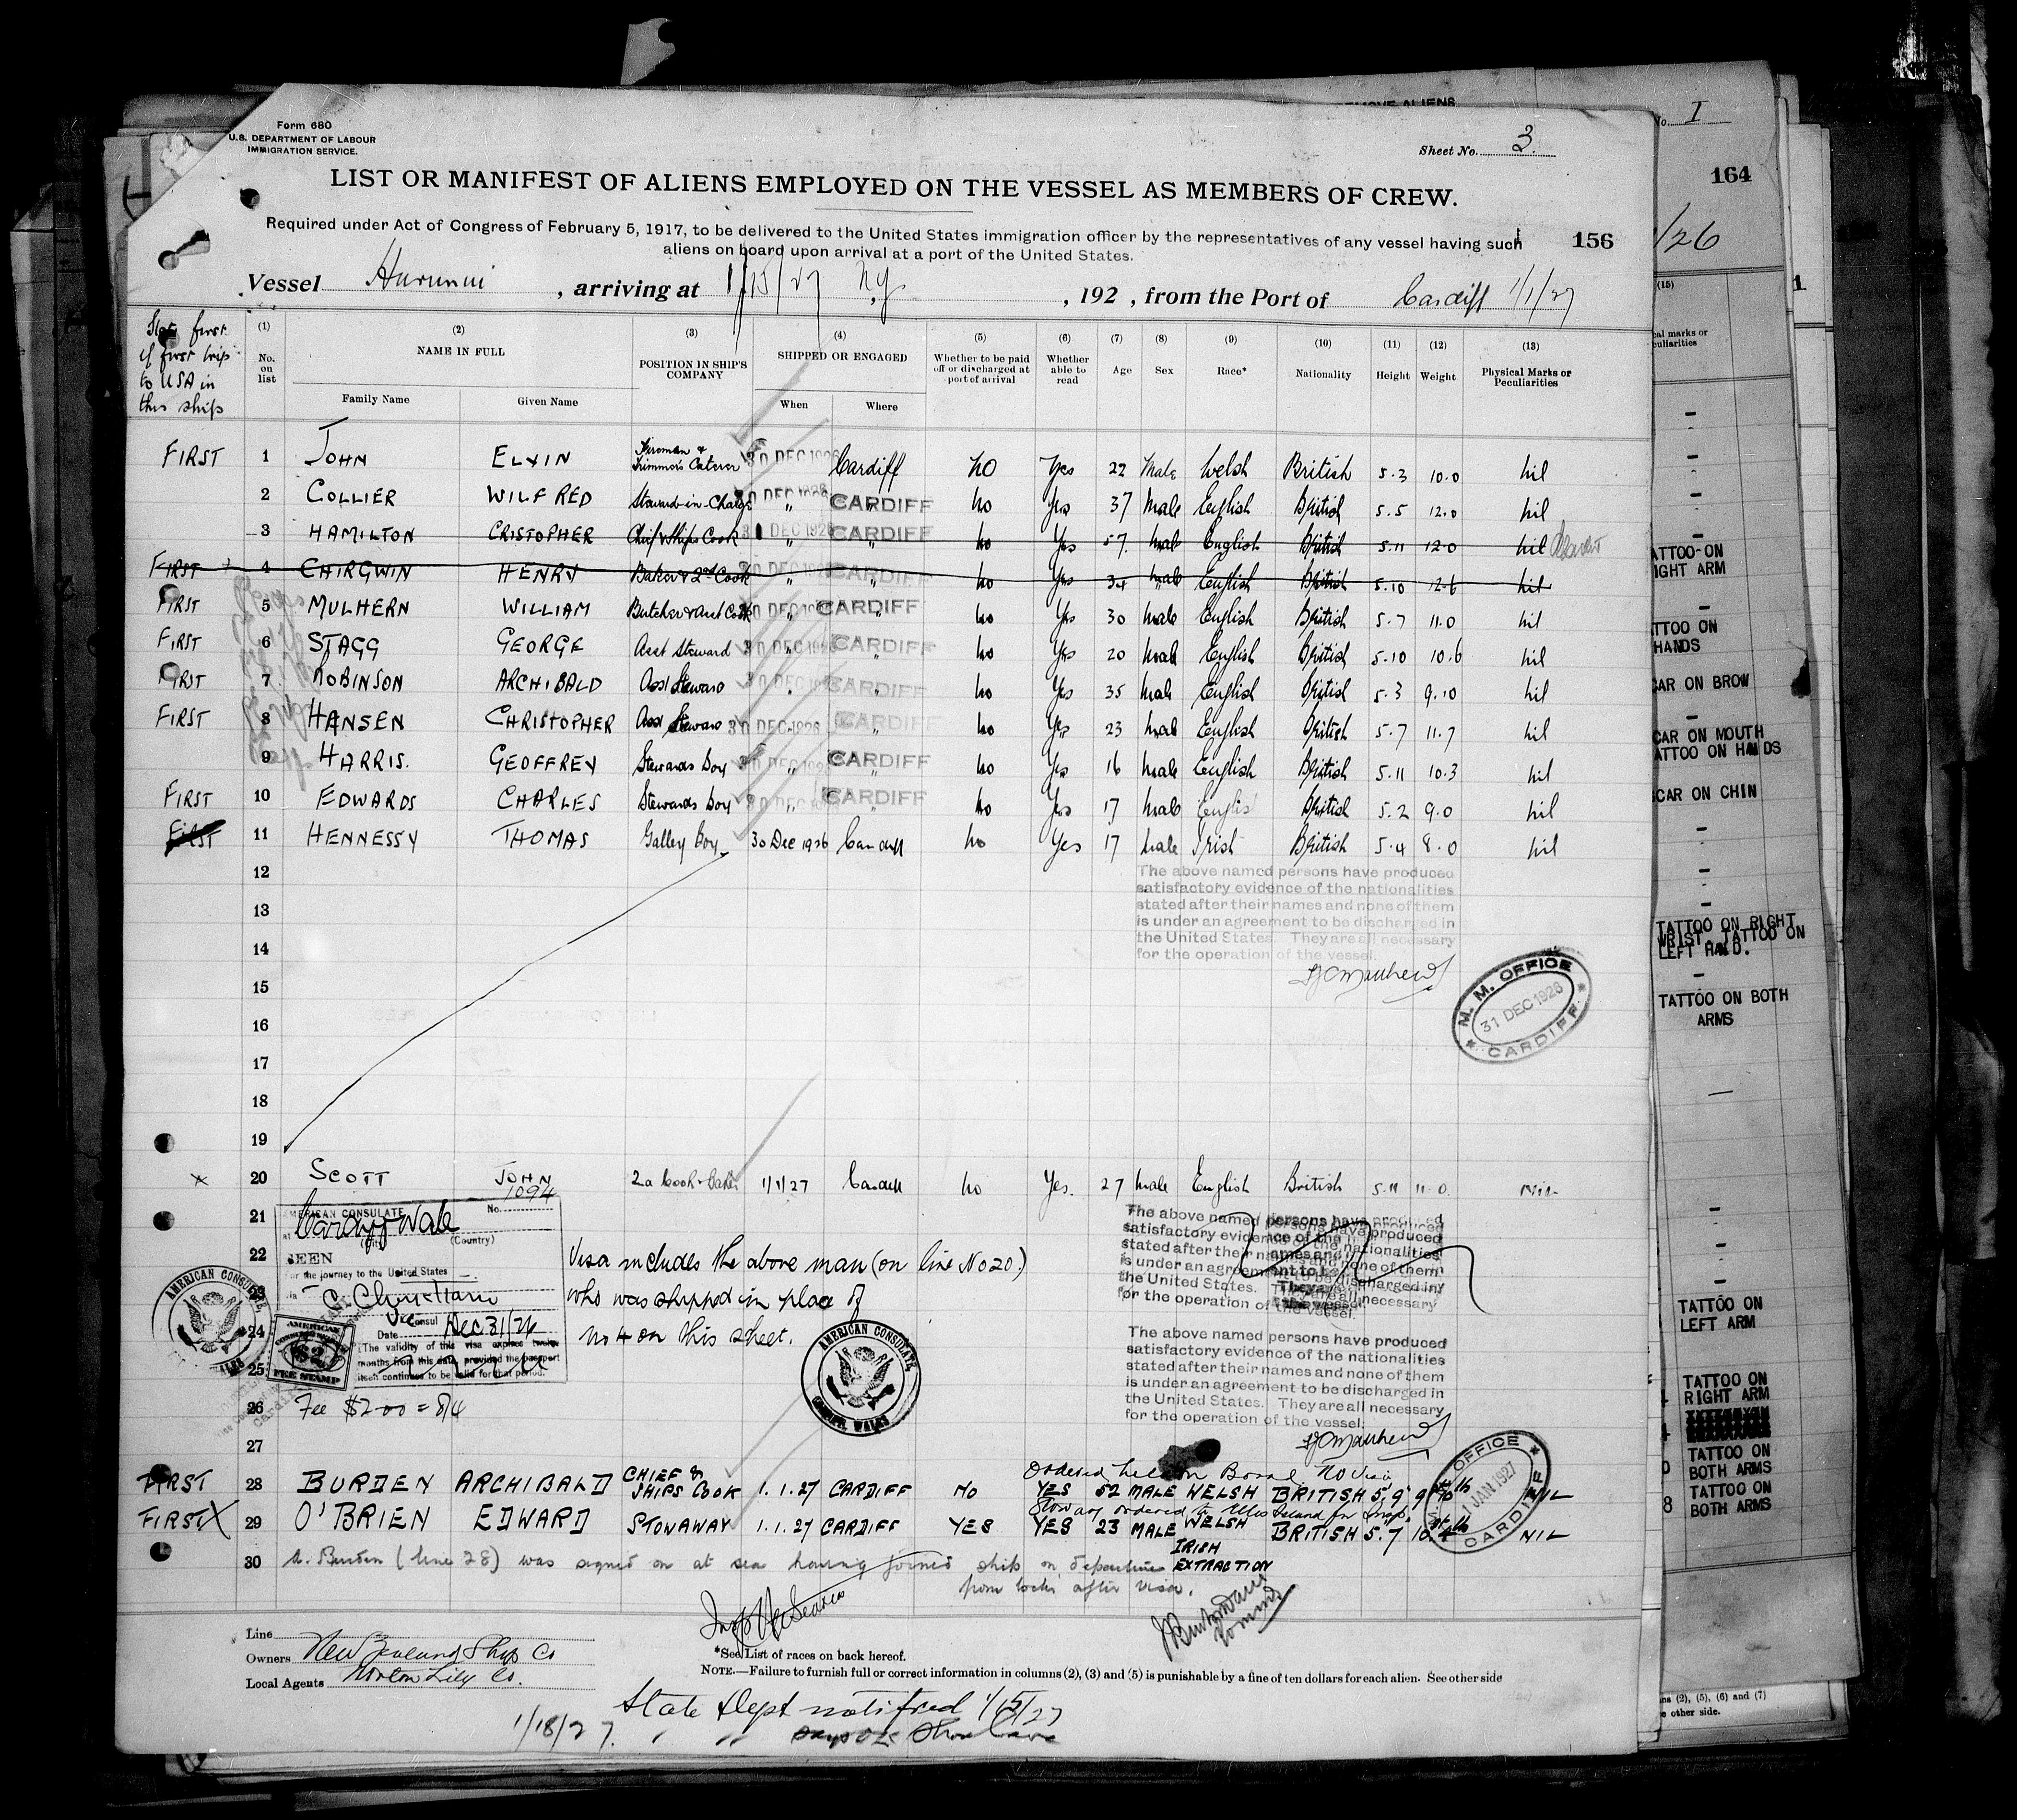 Form 680
U.S. DEPARTMENT OF LABOUR
IMMIGRATION SERVICE.
Sheet No. 3.
LIST OR MANIFEST OF ALIENS EMPLOYED ON THE VESSEL AS MEMBERS OF CREW.
Required under Act of Congress of February 5, 1917, to be delivered to the United States immigration officer by the representatives of any vessel having such
aliens on board upon arrival at a port of the United States.
156
Vessel Hurunui , arriving at 1/15/27 N.Y. , 192 , from the Port of Cardiff 1/1/27
first
if first trip
to USA in
this ship
(1) (2) (3) (4) (5) (6) (7) (8) (9) (10) (11) (12) (13)
No. on list NAME IN FULL POSITION IN SHIP'S COMPANY SHIPPED OR ENGAGED Whether to be paid off or discharged at port of arrival Whether able to read Age Sex Race* Nationality Height Weight Physical Marks or Peculiarities
Family Name Given Name When Where
FIRST 1 JOHN ELVIN Fireman & Trimmers Caterer 30 DEC 1926 Cardiff no Yes 22 Male Welsh British 5.3 10.0 nil
2 COLLIER WILFRED Steward-in-Charge 30 DEC 1926 " CARDIFF no Yes 37 Male English British 5.5 12.0 nil
3 HAMILTON CRISTOPHER Chief & Ships Cook 31 DEC 1926 " CARDIFF no Yes 57. male English British 5.11 12.0 nil
FIRST 4 CHIRGWIN HENRY Baker & 2nd Cook 30 DEC 1926 " CARDIFF no Yes 34 male English British 5.10 12.6 nil
FIRST 5 MULHERN WILLIAM Butcher & Asst Cook 30 DEC 1926 CARDIFF no Yes 30 male English British 5.7 11.0 nil
FIRST 6 STAGG GEORGE Asst Steward 30 DEC 1926 CARDIFF no Yes 20 male English British 5.10 10.6 nil
FIRST 7 ROBINSON ARCHIBALD Asst Steward 30 DEC 1926 CARDIFF no Yes 35 male English British 5.3 9.10 nil
FIRST 8 HANSEN CHRISTOPHER Asst Steward 30 DEC 1926 CARDIFF no Yes 23 male English British 5.7 11.7 nil
9 HARRIS. GEOFFREY Stewards boy 30 DEC 1926 CARDIFF no Yes 16 male English British 5.11 10.3 nil
FIRST 10 EDWARDS CHARLES Stewards boy 30 DEC 1926 CARDIFF no Yes 17 male English British 5.2 9.0 nil
First 11 HENNESSY THOMAS Galley Boy 30 Dec 1926 Cardiff no Yes 17 male Irish British 5.4 8.0 nil
12
The above named persons have produced
satisfactory evidence of the nationalities
13
stated after their names and none of them
is under an agreement to be discharged in
14
the United States. They are all necessary
for the operation of the vessel.
15
M. M. OFFICE
31 DEC 1926
CARDIFF
16
17
18
19
x 20 SCOTT JOHN 2nd Cook & Baker 1/1/27 Cardiff no Yes. 27 male English British 5.11 11.0. Nil
21
AMERICAN CONSULATE No. 1094
at Cardiff Wale
(City) (Country)
22
SEEN
For the journey to the United States
23
C. Christiani
Vice Consul
24
Date Dec 31/26
The validity of this visa expires twelve
months from this date, provided the passport
25
itself continues to be valid for that period.
AMERICAN
$2
FEE STAMP
AMERICAN CONSULATE,
WALES
26 Fee $2.00 = 8/4
Visa includes the above man (on line No 20)
who was shipped in place of
no 4 on this sheet.
AMERICAN CONSULATE,
CARDIFF, WALES
The above named persons have produced
satisfactory evidence of the nationalities
stated after their names and none of them
is under an agreement to be discharged in
the United States. They are all necessary
for the operation of the vessel.
The above named persons have produced
satisfactory evidence of the nationalities
stated after their names and none of them
is under an agreement to be discharged in
the United States. They are all necessary
for the operation of the vessel.
27
OFFICE
1 JAN 1927
CARDIFF
Ordered held on Board No Visa
FIRST 28 BURDEN ARCHIBALD CHIEF & SHIPS COOK 1.1.27 CARDIFF NO YES 52 MALE WELSH BRITISH 5.9 NIL
Stowaway ordered to Ellis Island for Insp.
FIRST X 29 O'BRIEN EDWARD STOWAWAY 1.1.27 CARDIFF YES YES 23 MALE WELSH BRITISH 5.7 NIL
IRISH
EXTRACTION
30 A. Burden (line 28) was signed on at sea having joined ship on departure
from locks after visa.
Line
Owners New Zealand Ship Co
Local Agents Norton Lilly Co.
*See List of races on back hereof.
NOTE.—Failure to furnish full or correct information in columns (2), (3) and (5) is punishable by a fine of ten dollars for each alien. See other side
State Dept notified 1/15/27
1/18/27. " "
MOVE ALIENS
No. I
164
/26
(15)
cal marks or
culiarities
1
ATTOO-ON
IGHT ARM
TTOO ON
HANDS
CAR ON BROW
CAR ON MOUTH
ATTOO ON HANDS
SCAR ON CHIN
TATTOO ON RIGHT
WRIST. TATTOO ON
LEFT HAND.
TATTOO ON BOTH
ARMS
TATTOO ON
LEFT ARM
TATTOO ON
RIGHT ARM
TATTOO ON
BOTH ARMS
TATTOO ON
BOTH ARMS
ns (2), (5), (6) and (7)
e other side.